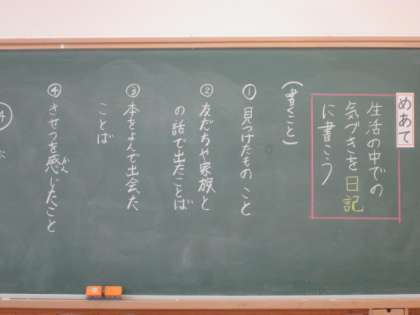 めあて
生活の中での
気づきを日記
に書こう
(書くこと)
①見つけたもの こと
②友だちや家族と
の話で出たことば
③本をよんで出会った
ことば
④きせつを感じたこと
かん